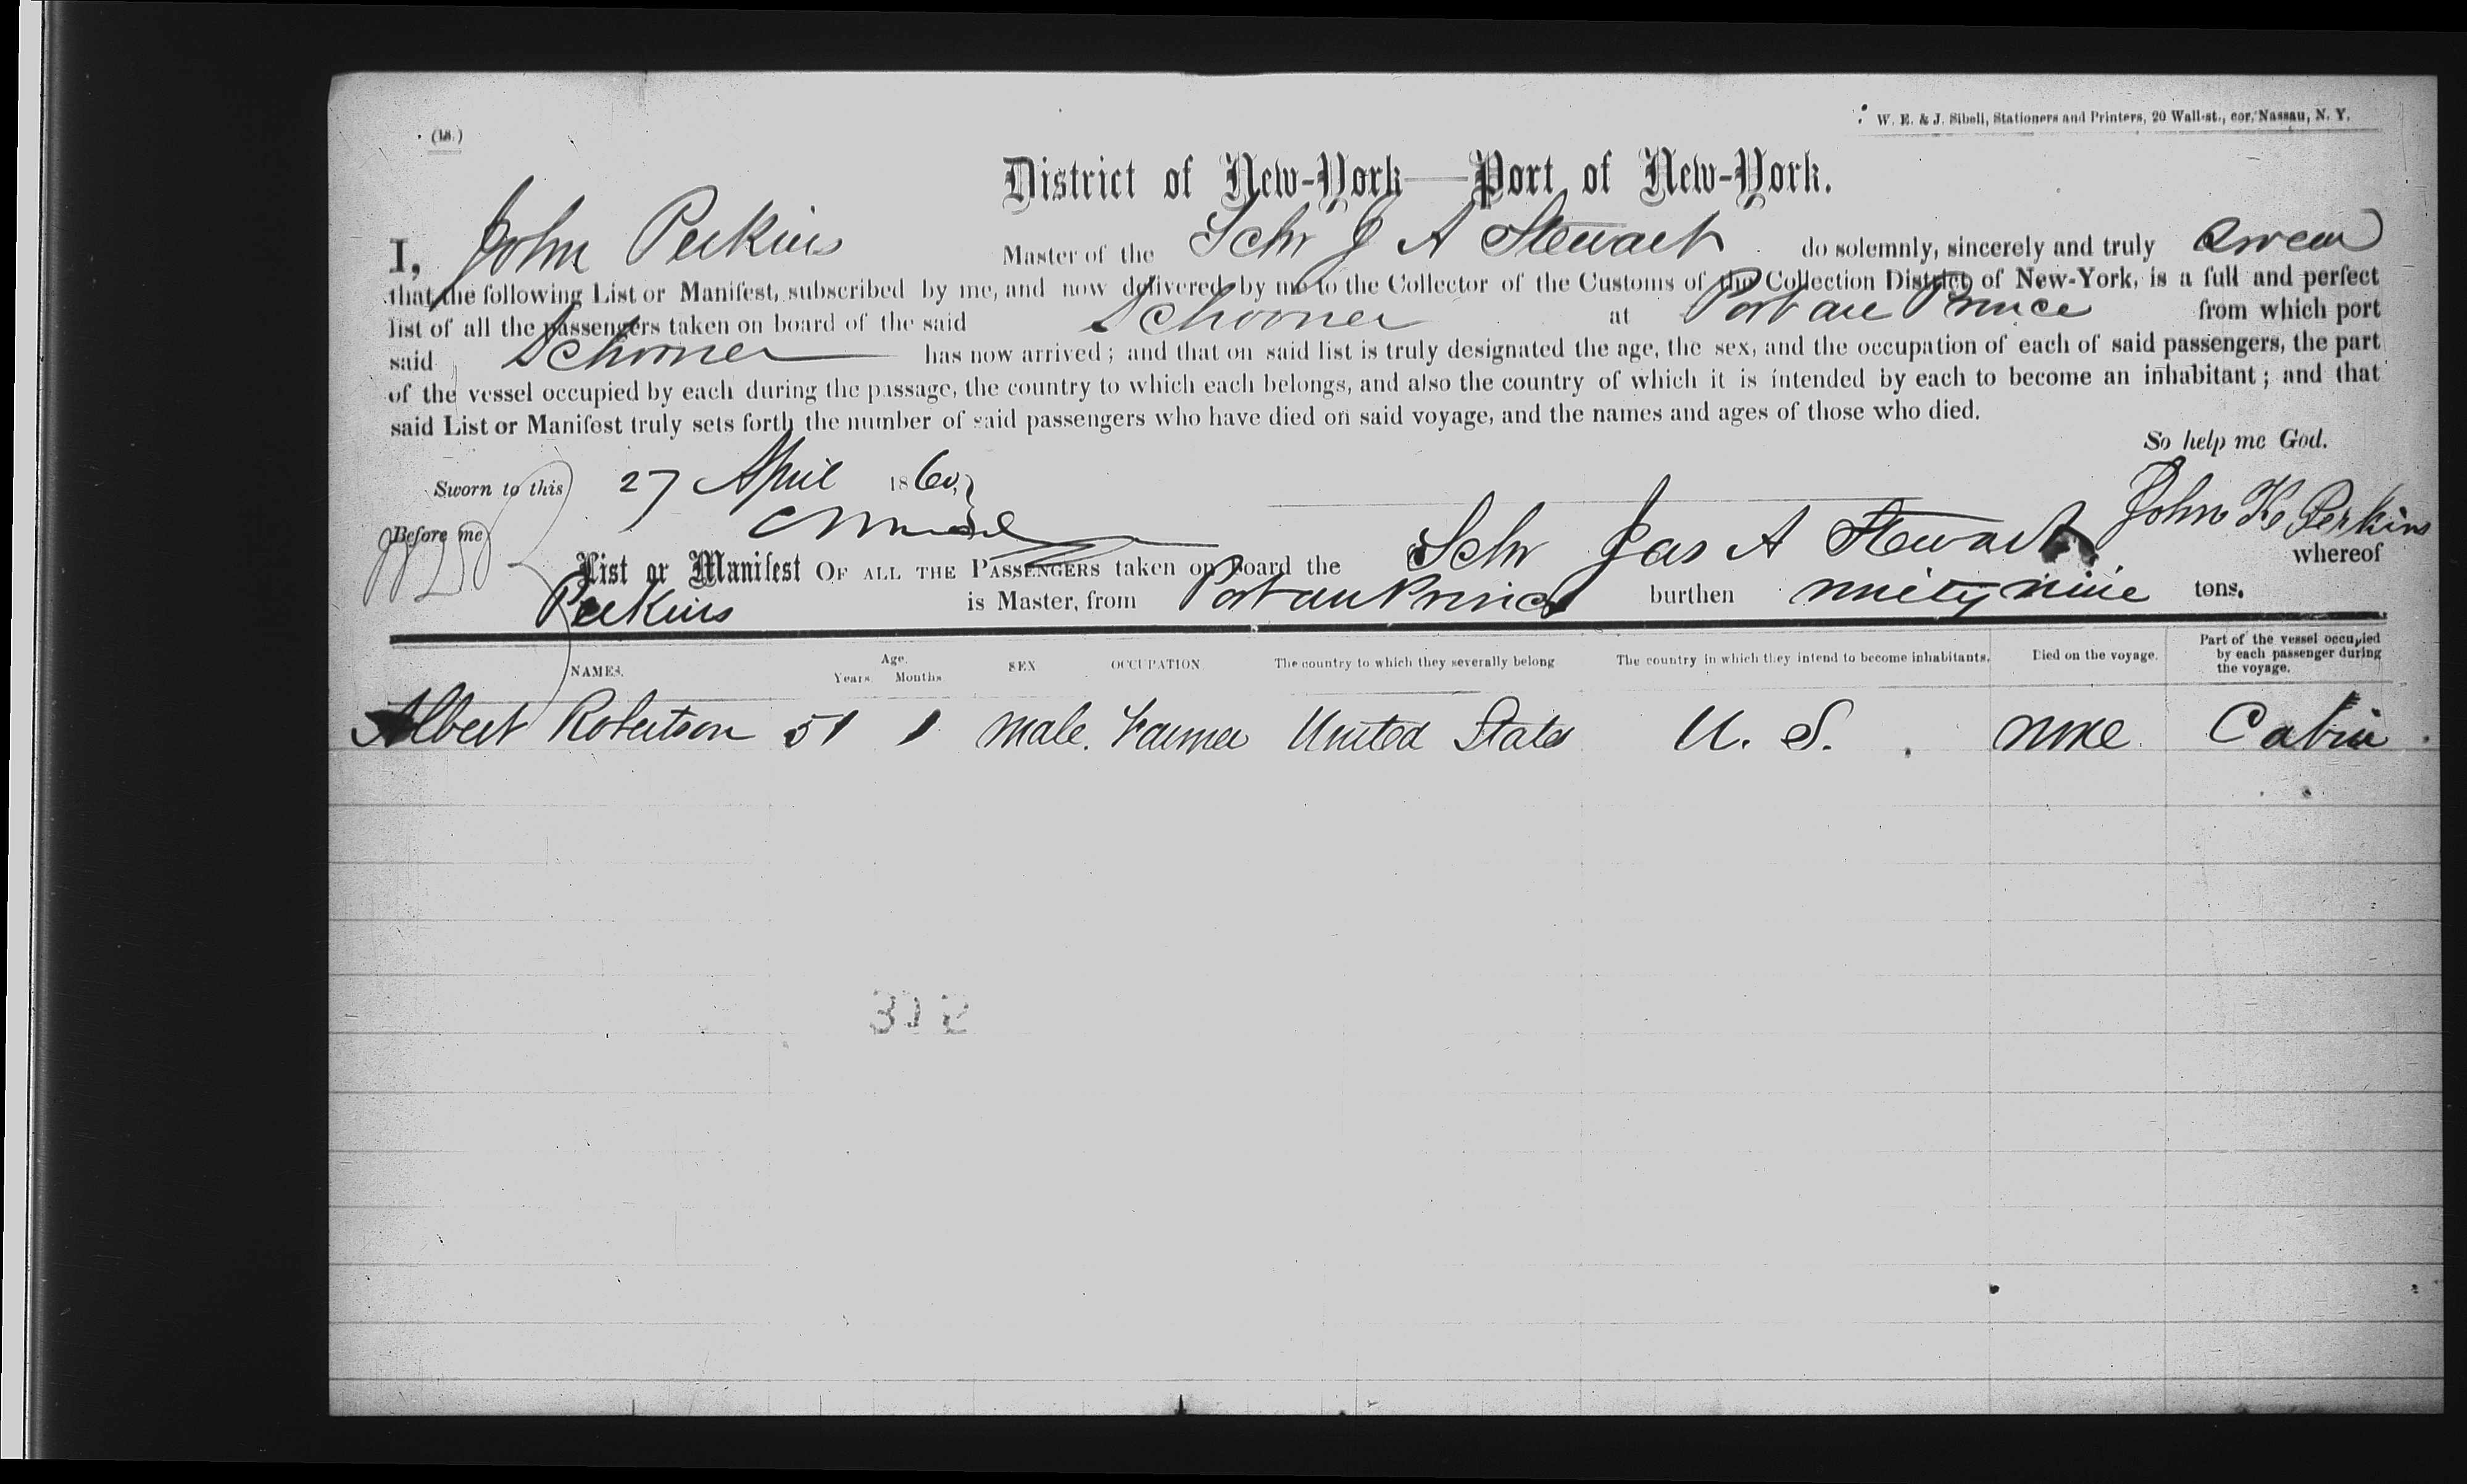 (18.)
W. E. & J. Sibell, Stationers and Printers, 20 Wall-st., cor. Nassau, N. Y.
District of New-York—Port of New-York.
I, John Perkins Master of the Schr J A Stewart do solemnly, sincerely and truly swear
that the following List or Manifest, subscribed by me, and now delivered by me to the Collector of the Customs of the Collection District of New-York, is a full and perfect
list of all the passengers taken on board of the said Schooner at Port au Prince from which port
said Schooner has now arrived; and that on said list is truly designated the age, the sex, and the occupation of each of said passengers, the part
of the vessel occupied by each during the passage, the country to which each belongs, and also the country of which it is intended by each to become an inhabitant; and that
said List or Manifest truly sets forth the number of said passengers who have died on said voyage, and the names and ages of those who died.
So help me God.
Sworn to this 27 April 1860,
John K Perkins
Before me
List or Manifest OF ALL THE PASSENGERS taken on board the Schr Jas A Stewart whereof
Perkins is Master, from Port au Prince burthen ninety nine tons.
NAMES. Age. Years. Months SEX OCCUPATION The country to which they severally belong The country in which they intend to become inhabitants. Died on the voyage. Part of the vessel occupied by each passenger during the voyage.
Albert Robertson 51 1 male. Farmer United States U. S. none. Cabin